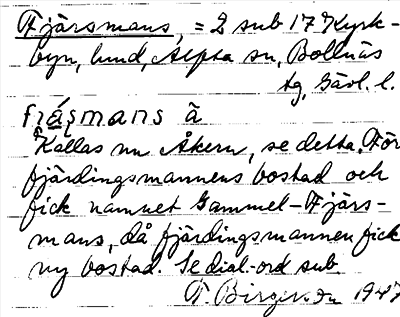 Fjärsmans, = 2 sub 17 Kyrk-
byn, lund, Alfta sn, Bollnäs
tg, Gävl. l.
fräsmans ä
Kallas nu Åkern, se detta. För
fjärdingsmannens bostad och
fick namnet Gammel-Fjärs-
mans, då fjärdingsmannen fick
ny bostad. Se dial.-ord sub.
T. Birgersson 1947